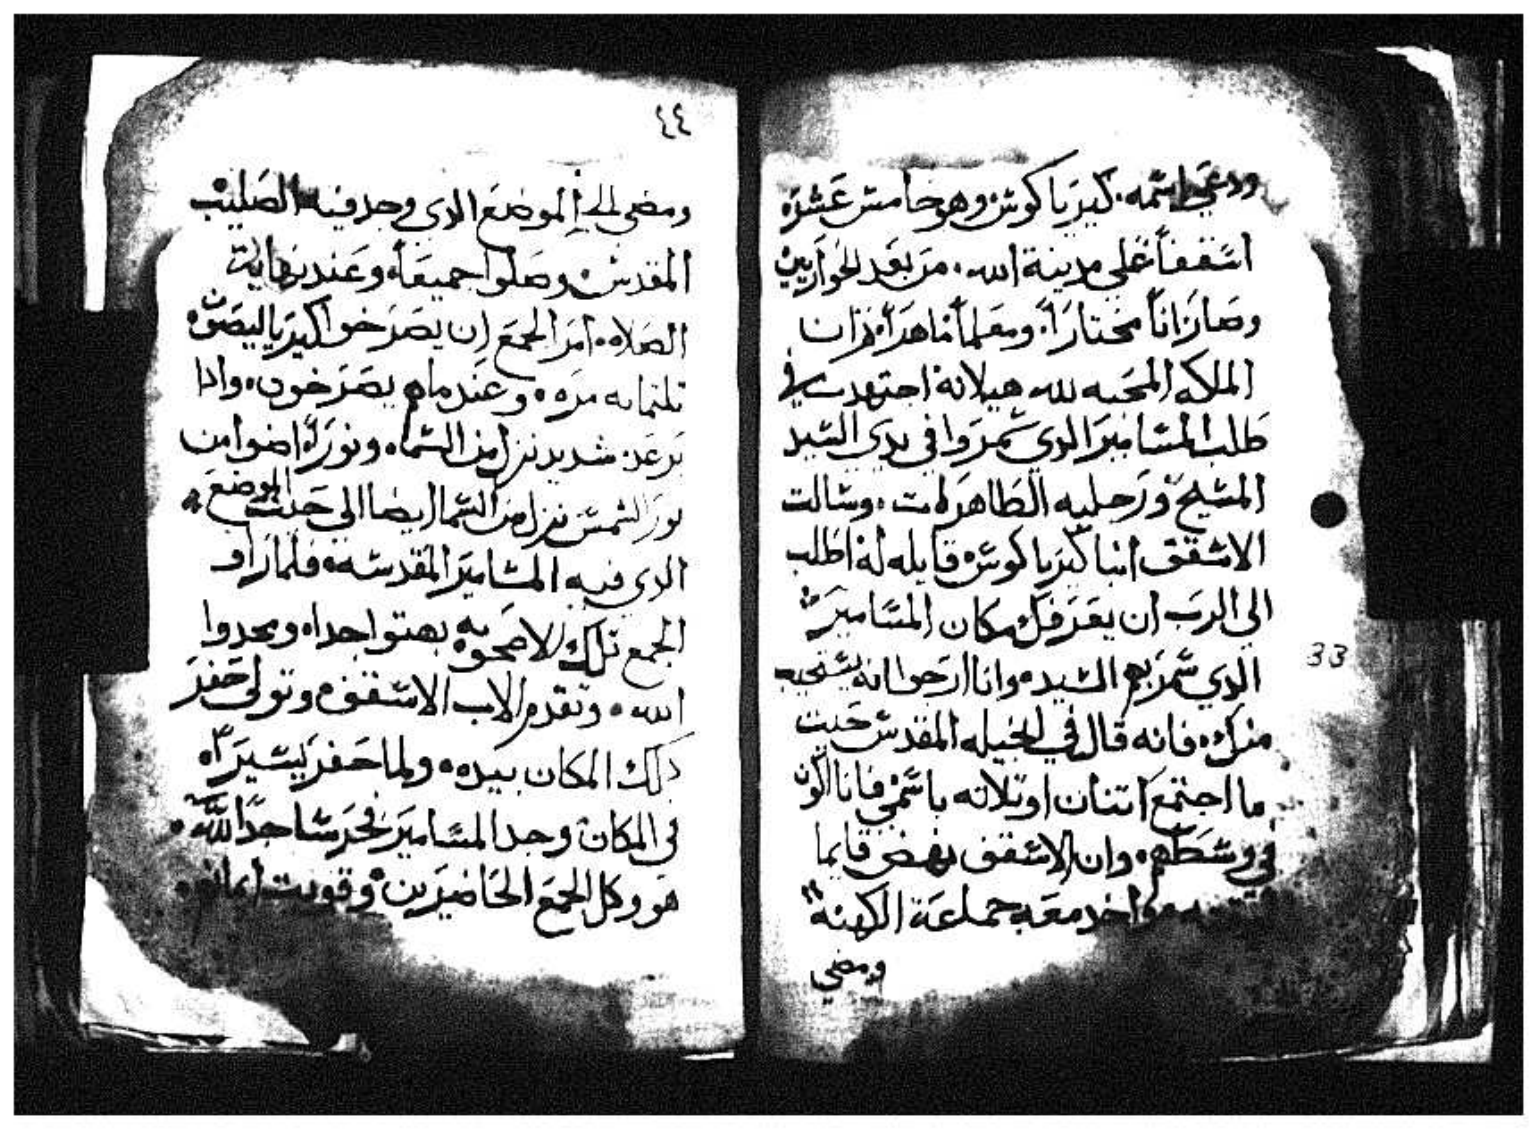 ودعي اسمه كيرياكوس وهو خامس عشره
اسقفاً علي مدينة الله. من بعد الحواريين
وصار اناً مختاراً. ومعلماً ماهراً فران
الملكه المحبه لله هيلانة اجتهدت في
طلب المسامير الدي سمروا في يدي السيد
المسيح ورجليه الطاهرات. وسالت
الاسقف انبا كيرياكوس قايله له اطلب
الى الرب ان يعرفك مكان المسامير
الدي سمر بهم السيد وانا ارجوا انه يستجيب
منك. فانه قال في انجيله المقدس حيت
ما اجتمع اتنان او تلاته باسمي فانا اكون
في وسطهم. وان الاسقف نهض قايما
واخد معه جماعة الكهنه
ومضي
33
٤٤
ومضي الي الموضع الدي وجد فيه الصليب
المقدس وصلوا جميعاً. وعند نهاية
الصلاه. امر الجمع ان يصرخوا كيرياليصون
تلتمايه مره. وعند ما هم يصرخون. وادا
برعد شديد نزل من السماء ونوراً اضوا من
نور الشمس نزل من السما ايضا الي حيت الموضع
الدي فيه المسامير المقدسه. فلما راو
الجمع تلك الاعجوبه بهتوا جدا. ومجدوا
الله. وتقدم الاب الاسقف وتولي حفر
دلك المكان بيده. ولما حفر يسيراً
في المكان وجد المسامير فخر ساجداً لله.
هو وكل الجمع الحاضرين وقويت ايمانهم.